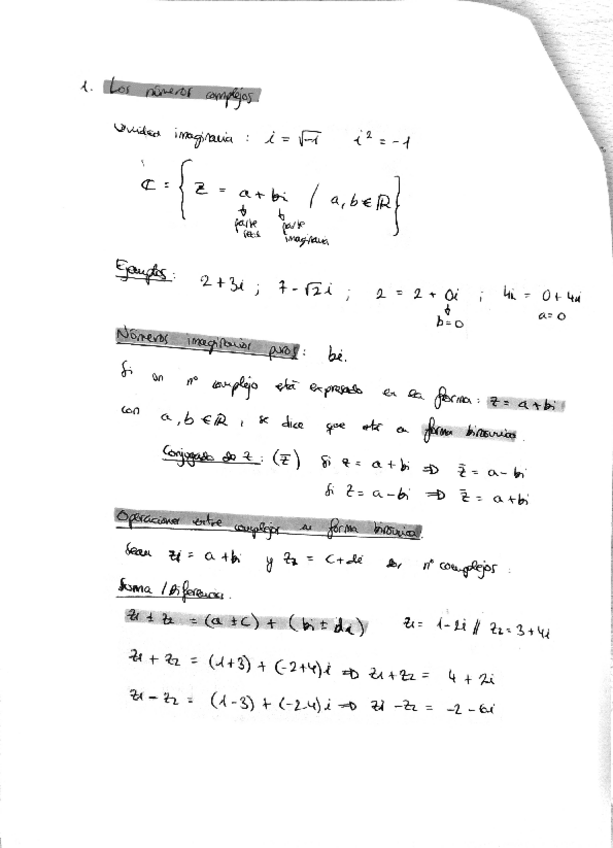 1. Los números complejos
Unidad imaginaria : i = √-1    i² = -1
ℂ = { z = a + bi / a, b ∈ ℝ }
parte real    parte imaginaria
Ejemplos: 2 + 3i ; 7 - √2i ; 2 = 2 + 0i ; 4i = 0 + 4i
b = 0    a = 0
Números imaginarios puros : bi.
Si un nº complejo está expresado en la forma : z = a + bi
con a, b ∈ ℝ, se dice que está en forma binómica.
Conjugado de z : (z̄) Si z = a + bi ⇒ z̄ = a - bi
Si z = a - bi ⇒ z̄ = a + bi
Operaciones entre complejos en forma binómica.
Sean z1 = a + bi y z2 = c + di dos nº complejos :
Suma / Diferencia.
z1 ± z2 = (a ± c) + (bi ± di)    z1 = 1 - 2i // z2 = 3 + 4i
z1 + z2 = (1+3) + (-2+4)i ⇒ z1 + z2 = 4 + 2i
z1 - z2 = (1-3) + (-2-4)i ⇒ z1 - z2 = -2 - 6i